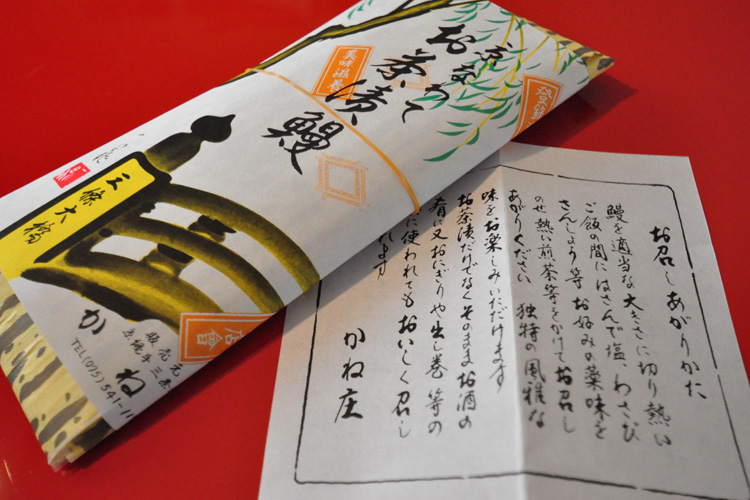 京なわて
お茶漬鰻
美味
登録
三條大橋
かね
販売元
京縄手三条
TEL(075)541-11
お召しあがりかた
鰻を適当な大きさに切り熱い
ご飯の間にはさんで塩、わさび
さんしょう等お好みの薬味を
のせ熱い煎茶等をかけてお召し
あがりください 独特の風雅な
味をお楽しみいただけます
お茶漬だけでなくそのままお酒の
肴に又おにぎりや出し巻等の
に使われてもおいしく召し
れます
かね庄